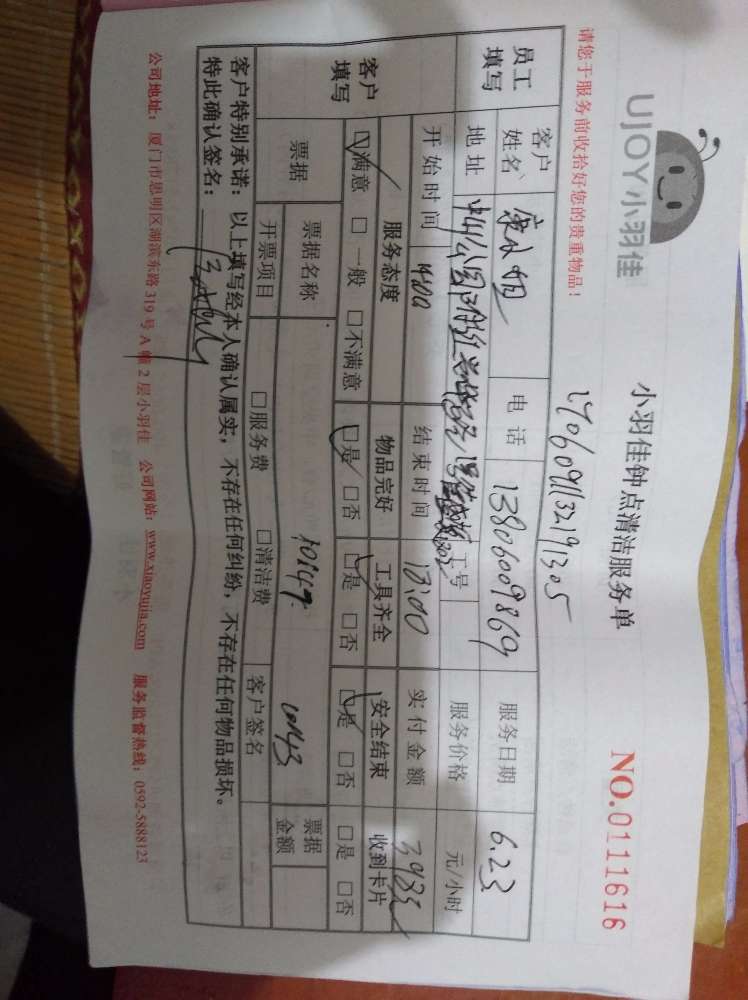 UJOY小羽佳
小羽佳钟点清洁服务单
NO.0111616
请您于服务前收拾好您的贵重物品!
员工填写
客户姓名 电话 13806009869 服务日期 6.23
地址 工号 服务价格 元/小时
开始时间 结束时间 实付金额
客户填写
服务态度 物品完好 工具齐全 安全结束 收到卡片
☑满意 □一般 □不满意 ☑是 □否 ☑是 □否 ☑是 □否 □是 □否
票据 票据名称 票据金额
开票项目 □服务费 □清洁费 客户签名
客户特别承诺:以上填写经本人确认属实,不存在任何纠纷,不存在任何物品损坏。
特此确认签名:
公司地址:厦门市思明区湖滨东路319号A幢2层小羽佳 公司网站:www.xiaoyujia.com 服务监督热线:0592-5888123